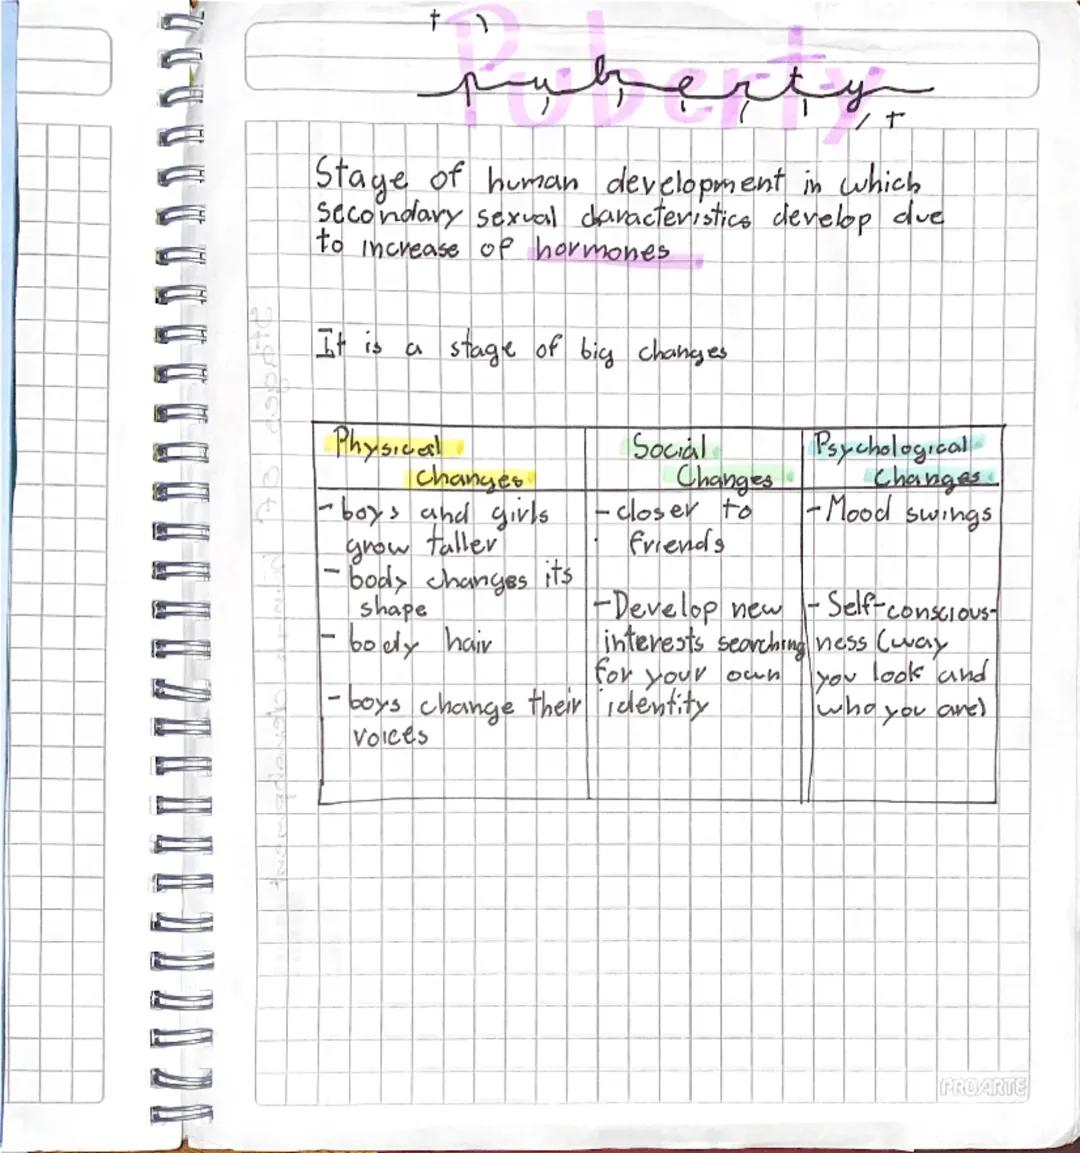 Puberty
puberty
Stage of human development in which
secondary sexual characteristics develop due
to increase of hormones
It is a stage of big changes
Physical
Changes
- boys and girls
grow taller
- body changes its
shape
- body hair
- boys change their
voices
Social
Changes
- closer to
friends
- Develop new
interests searching
for your own
identity
Psychological
Changes
- Mood swings
- Self-conscious-
ness (way
you look and
who you are)
PROARTE